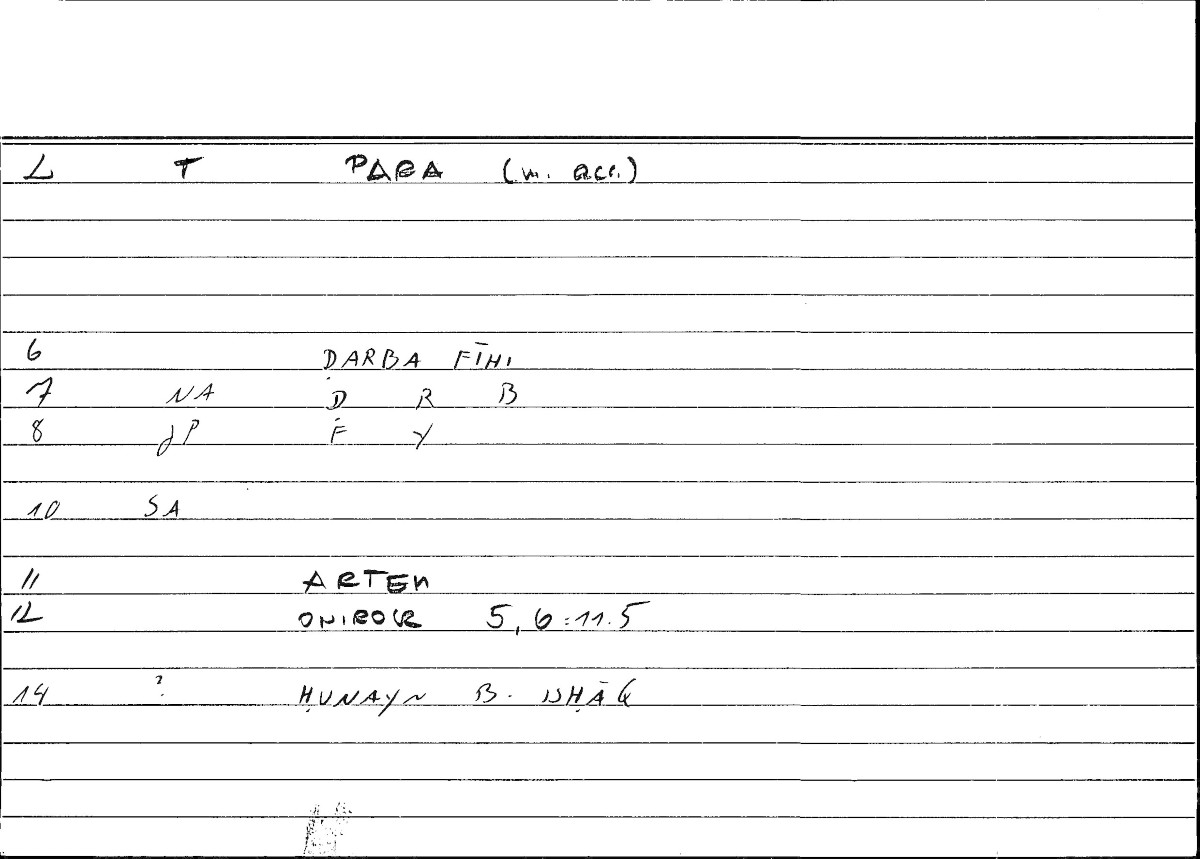 L T PARA (m. acc.)
6 ḌARBA FĪHI
7 NA Ḍ R B
8 JP F Y
10 SA
11 ARTEM
12 ONIROCR 5,6:11.5
14 ? ḤUNAYN B. ISḤĀQ